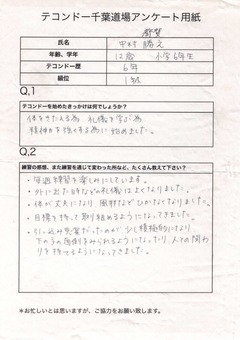 テコンドー千葉道場アンケート用紙
氏名 中村 勝之
年齢、学年 12歳 小学6年生
テコンドー歴 6年
級位 1級
Q,1
テコンドーを始めたきっかけは何でしょうか？
体をきたえる為 礼儀を学ぶ為
精神力を強くする為に始めました。
Q,2
練習の感想、また練習を通じて変わった所など、たくさん教えて下さい？
・毎週練習を楽しみにしています。
・外に出た時などの礼儀はよくなりました。
・体が丈夫になり風邪などひかなくなりました。
・目標を持って取り組めるようになってきました。
・引っ込み思案だったのが少し積極的になり
下の子の面倒をみられるようになったり、人との関わ
りを持てるようになってきました。
＊お忙しいとは思いますが、ご協力をお願い致します。